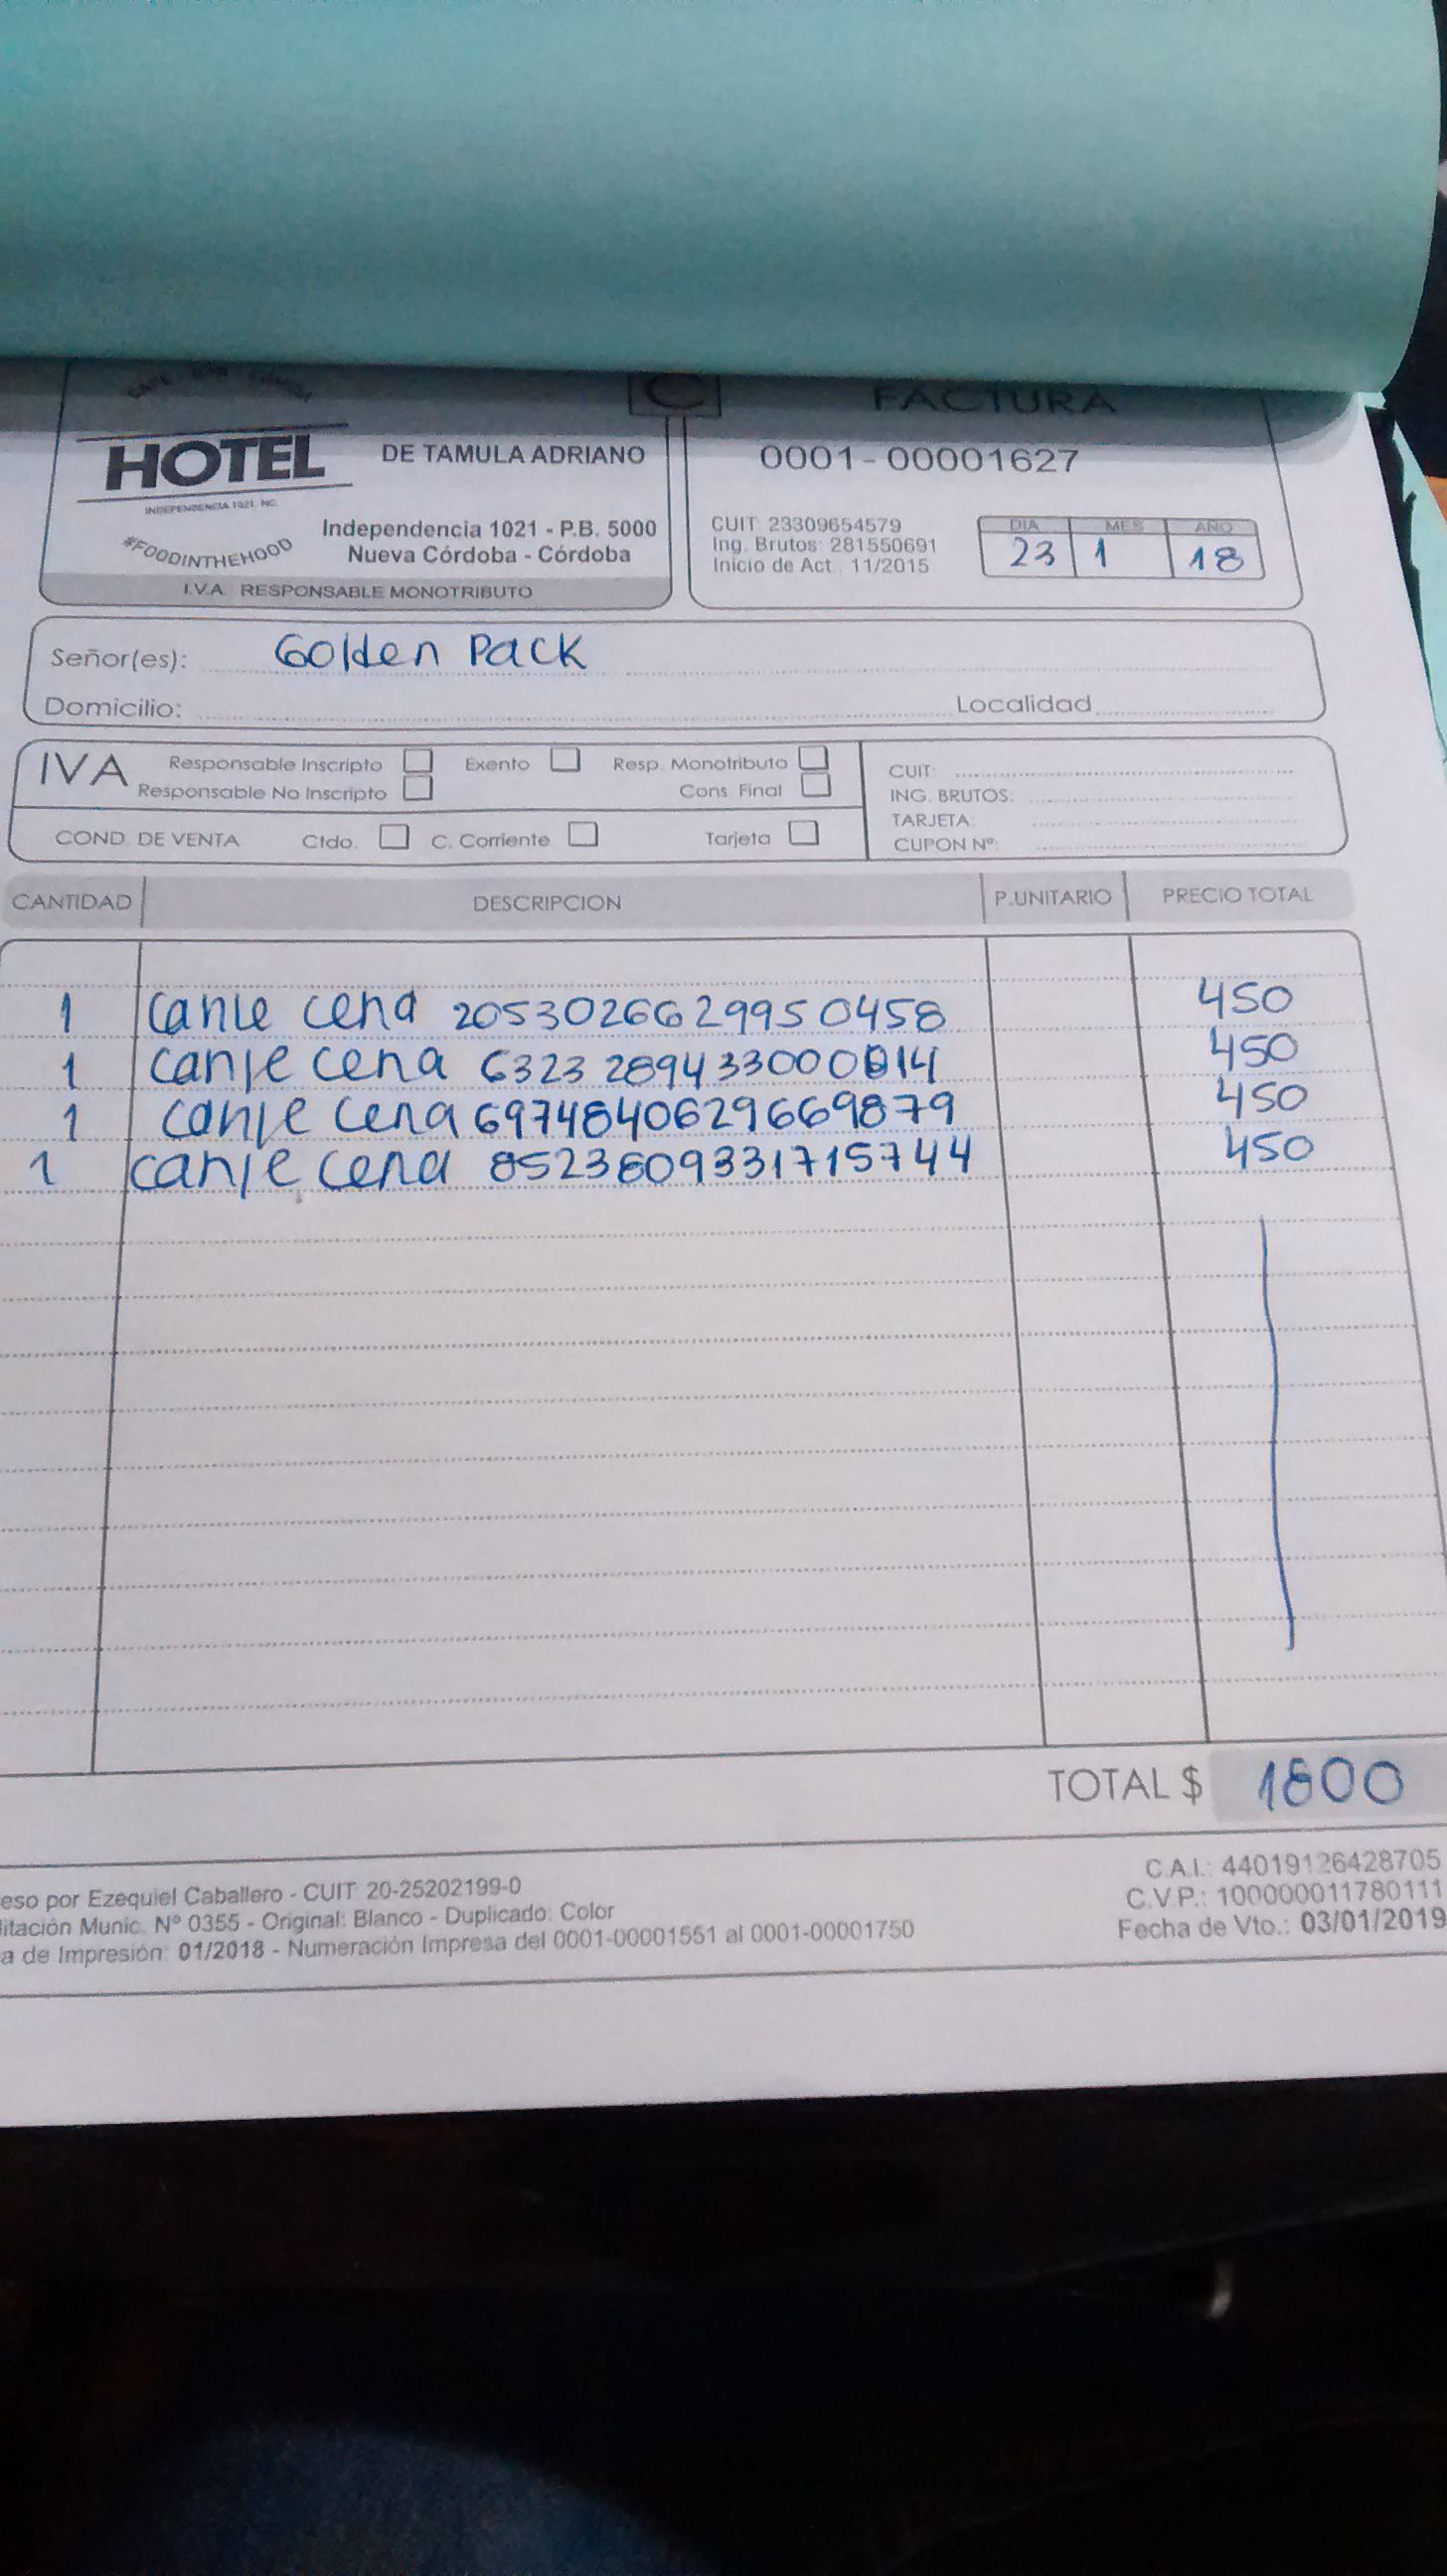 C FACTURA
HOTEL DE TAMULA ADRIANO
0001-00001627
INDEPENDENCIA 1021. NC.
#FOODINTHEHOOD
Independencia 1021 - P.B. 5000
Nueva Córdoba - Córdoba
I.V.A. RESPONSABLE MONOTRIBUTO
CUIT: 23309654579
Ing. Brutos: 281550691
Inicio de Act.: 11/2015
DIA MES AÑO
23 1 18
Señor(es): Golden Pack
Domicilio: Localidad
IVA Responsable Inscripto Exento Resp. Monotributo
Responsable No Inscripto Cons. Final
COND. DE VENTA Ctdo. C. Corriente Tarjeta
CUIT:
ING. BRUTOS:
TARJETA:
CUPON Nº:
CANTIDAD DESCRIPCION P.UNITARIO PRECIO TOTAL
1 Canje cena 2053026629950458 450
1 canje cena 6323289433000014 450
1 canje cena 6974840629669879 450
1 canje cena 8523809331715744 450
TOTAL $ 1800
eso por Ezequiel Caballero - CUIT: 20-25202199-0
litación Munic. Nº 0355 - Original: Blanco - Duplicado: Color
a de Impresión: 01/2018 - Numeración Impresa del 0001-00001551 al 0001-00001750
C.A.I.: 44019126428705
C.V.P.: 100000011780111
Fecha de Vto.: 03/01/2019